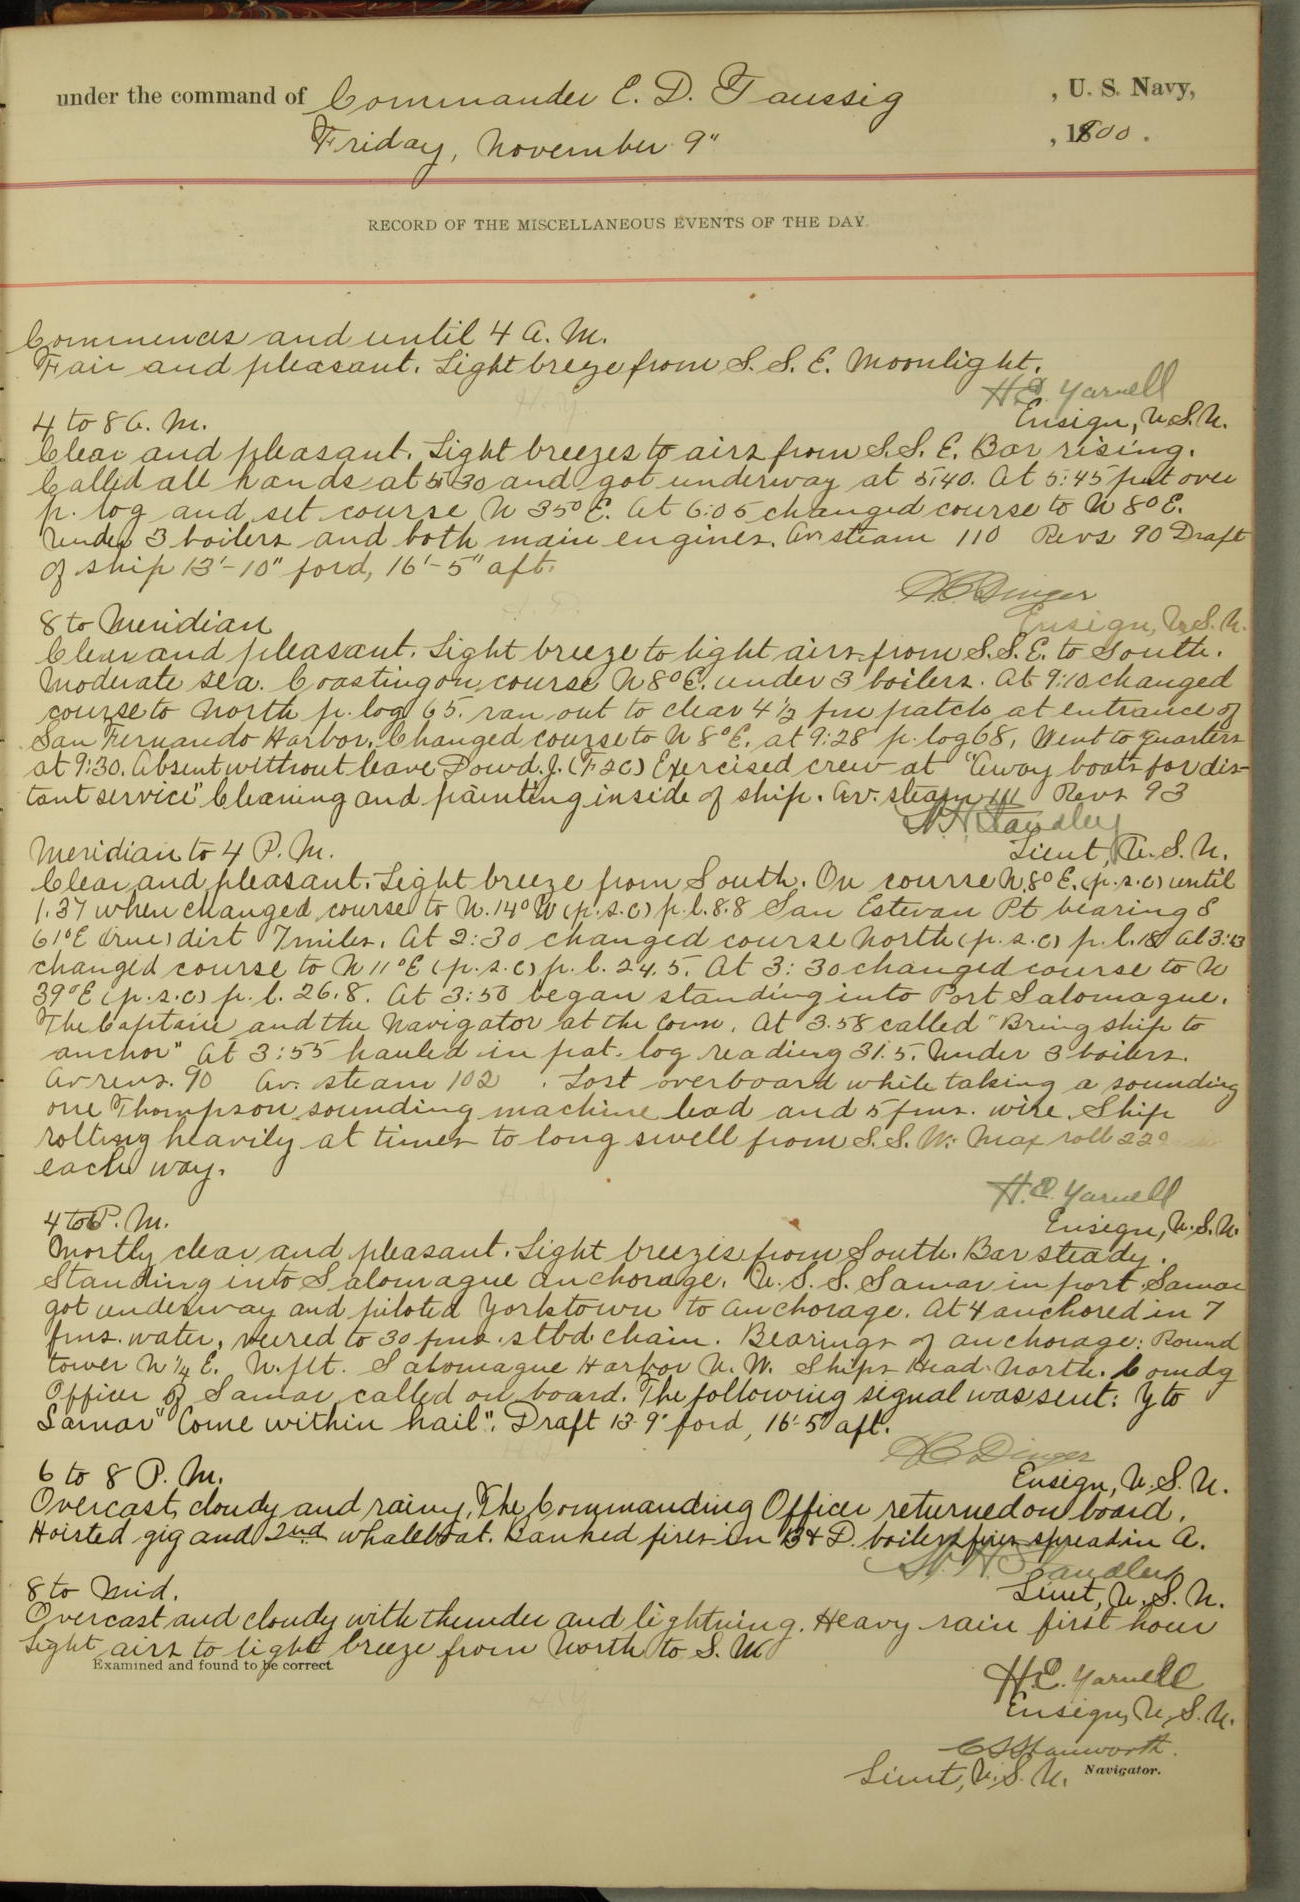 under the command of Commander E. D. Taussig, U. S. Navy,
Friday, November 9", 1900.
RECORD OF THE MISCELLANEOUS EVENTS OF THE DAY.
Commences and until 4 A. M.
Fair and pleasant. Light breeze from S. S. E. Moonlight.
H.E. Yarnell
Ensign, U.S.N.
4 to 8 A. M.
Clear and pleasant. Light breezes to airs from S.S.E. Bar rising.
Called all hands at 5:30 and got underway at 5:40. At 5:45 put over
p. log and set course N 35° E. At 6:05 changed course to N 8° E.
Under 3 boilers and both main engines. Av steam 110 Revs 90 Draft
of ship 13'-10" ford, 16'-5" aft.
H C Dinger
Ensign, U.S.N.
8 to Meridian
Clear and pleasant. Light breeze to light airs from S.S.E. to South.
Moderate sea. Coasting on course N 8° E. under 3 boilers. At 9:10 changed
course to North p. log 65. ran out to clear 4½ fm patch at entrance of
San Fernando Harbor. Changed course to N 8° E. at 9:28 p. log 68. Went to quarters
at 9:30. Absent without leave Dowd. J. (F2C) Exercised crew at "Away boats for dis-
tant service" Cleaning and painting inside of ship. Av. steam 111 Revs 93
W. H. Standley
Lieut, U. S. N.
Meridian to 4 P. M.
Clear and pleasant. Light breeze from South. On course N. 8° E. (p.s.c) until
1.37 when changed course to N. 14° W (p.s.c) p.l. 8.8 San Estevan Pt bearing S
61° E (true) dist 7 miles. At 2:30 changed course North (p.s.c) p.l. 18 At 3:13
changed course to N 11° E (p.s.c) p.l. 24.5. At 3:30 changed course to N
39° E (p.s.c) p.l. 26.8. At 3:50 began standing into Port Salomague.
The Captain and the Navigator at the Conn. At 3.58 called "Bring ship to
anchor" At 3:55 hauled in pat. log reading 31.5. Under 3 boilers.
Av revs. 90 Av. steam 102. Lost overboard while taking a sounding
one Thompson sounding machine lead and 5 fms. wire. Ship
rolling heavily at times to long swell from S.S.W. Max roll 22°
each way.
H.E. Yarnell
Ensign, U.S.N.
4 to 6 P. M.
Mostly clear and pleasant. Light breezes from South. Bar steady.
Standing into Salomague anchorage. U.S.S. Samar in port. Samar
got underway and piloted Yorktown to anchorage. At 4 anchored in 7
fms. water, veered to 30 fms. stbd. chain. Bearings of anchorage: Round
tower N ¼ E. W. Pt. Salomague Harbor N. W. Ships Head North. Comdg
Officer of Samar called on board. The following signal was sent: Y to
Samar "Come within hail". Draft 13-9" ford, 16'-5" aft.
H C Dinger
Ensign, U.S.N.
6 to 8 P. M.
Overcast, cloudy and rainy. The Commanding Officer returned on board.
Hoisted gig and 2nd whaleboat. Banked fires in B & D. boilers fires spread in A.
W. H. Standley
Lieut, U.S.N.
8 to Mid.
Overcast and cloudy with thunder and lightning. Heavy rain first hour
Light airs to light breeze from North to S. W.
Examined and found to be correct.
H.E. Yarnell
Ensign, U.S.N.
C S Stanworth.
Lieut, U.S.N. Navigator.